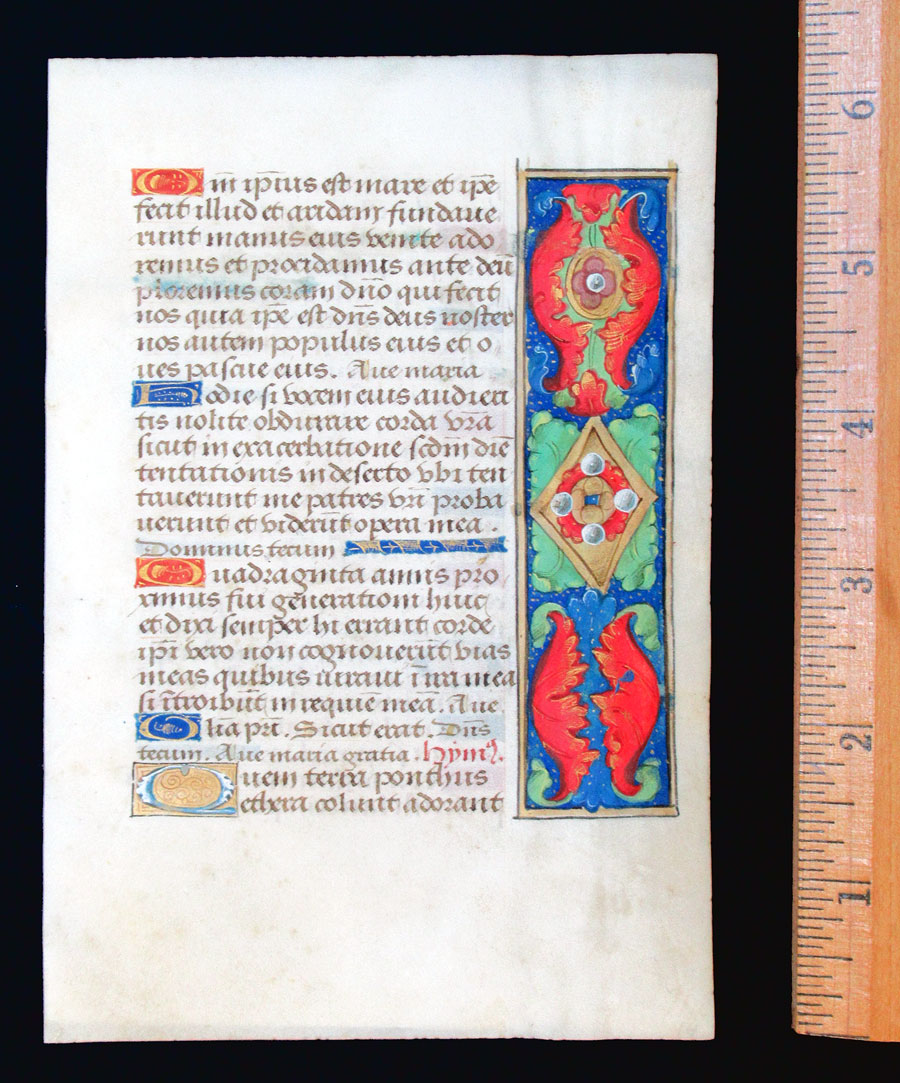 Qm̄ ip̄ius est mare et ip̄e
fecit illud et aridam fundaue
runt manus eius venite ado
remus et procidamus ante deū
ploremus coram dn̄o qui fecit
nos quia ip̄e est dn̄s deus noster
nos autem populus eius et o
ues pascue eius. Aue maria
Hodie si vocem eius audieri
tis nolite obdurare corda vr̄a
sicut in exacerbatione scdm̄ diē
tentationis in deserto vbi ten
tauerunt me patres vr̄i proba
uerunt et viderūt opera mea.
Dominus tecum
Quadraginta annis pro
ximus fui generationi huic
et dixi semper hi errant corde
ip̄i vero non cognouerūt vias
meas quibus iuraui ī ira mea
si īt̄roibūt in requiē meā. Aue
Glīa pr̄i. Sicut erat. Dn̄s
tecum. Aue maria gratia. Hymꝰ.
Quem terra ponthus
ethera colunt adorant
6
5
4
3
2
1